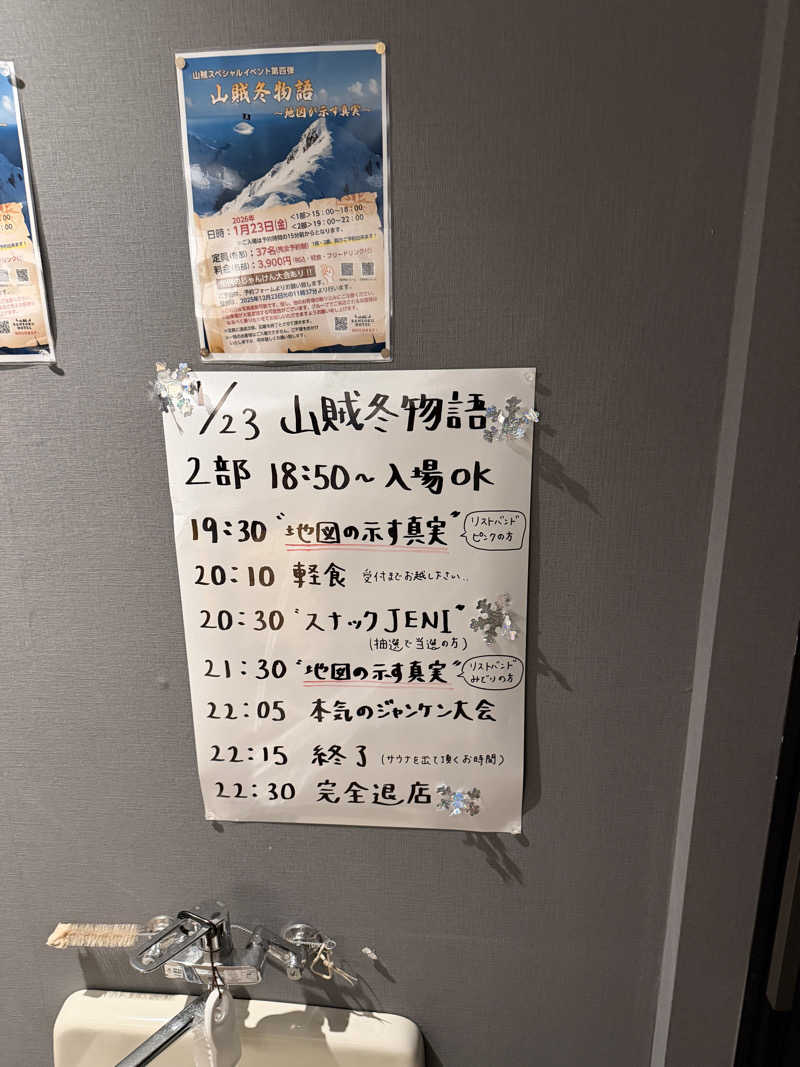 山賊スペシャルイベント第四弾
山賊冬物語
～地図が示す真実～
2026年
日時：1月23日(金) <1部>15：00～18：00
<2部>19：00～22：00
※ご入場は予約時間の15分前からとなります。
定員(各部)：37名(完全予約制)
料金(各部)：3,900円(税込・軽食・フリードリンク付)
じゃんけん大会あり!!
1/23 山賊冬物語
2部 18:50～入場OK
19:30 "地図の示す真実" リストバンド ピンクの方
20:10 軽食 受付までお越し下さい..
20:30 "スナックJENI"
(抽選で当選の方)
21:30 "地図の示す真実" リストバンド みどりの方
22:05 本気のジャンケン大会
22:15 終了 (サウナを出て頂くお時間)
22:30 完全退店